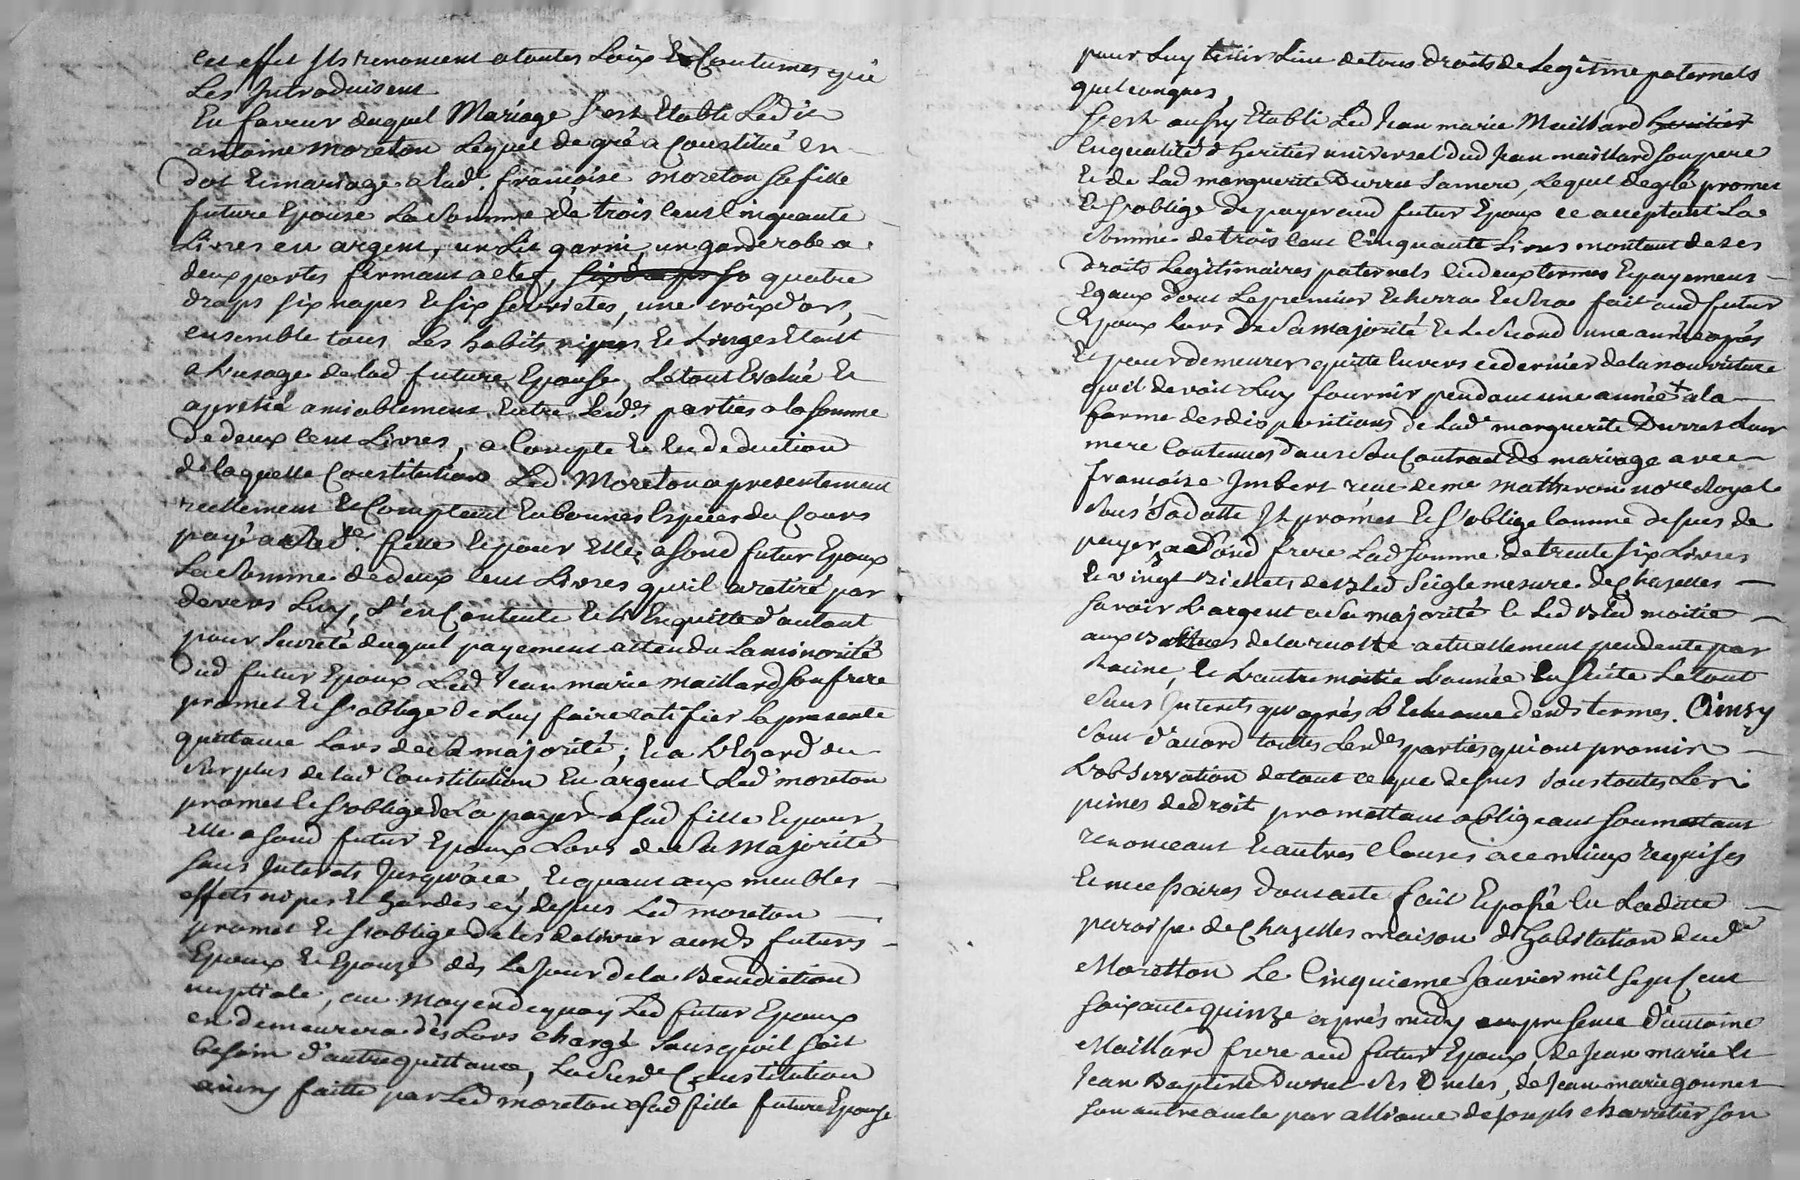 cet effet Ils renoncent a toutes Loix Et Coutumes qui
Les Introduisent
En faveur duquel Mariage s'est Etabli Ledit
antoine moreton Lequel de gré a Constitué En
dot Et mariage a lad. françoise moreton sa fille
future Epouse La Somme de trois Cent Cinquante
Livres en argent, un Lit garni, un garderobe a
deux portes fermant a clef, quatre
draps six napes Et six serviettes, une croix d'or,
ensemble tous Les habits nipes Et Linges Etant
a L'usage de lad future Epouse, Le tout Evalué Et
apretié amiablement Entre Lesd.es parties a la somme
de deux Cent Livres, a Compte Et En deduction
de laquelle Constitution Led. Moreton a presentement
reellement Et Comptant En bonnes Especes du Cours
payé a sad. fille Et pour Elle a sond futur Epoux
La Somme de deux Cent Livres qu'il a retiré par
devers Luy, s'en Contente Et L'En quitte d'autant
pour sureté duquel payement attendu La minorité
dud futur Epoux Led Jean marie maillard son frere
promet Et s'oblige de Luy faire ratifier La presente
quittance Lors de sa majorité; Et a L'Egard du
surplus de lad Constitution En argent Led moreton
promet Et s'oblige de La payer a sad fille Et pour
Elle a sond futur Epoux Lors de sa majorité
sans Interets Jusqu'àce Et quant aux meubles
effets nipes Et hardes cy desus Led moreton
promet Et s'oblige de les delivrer auxds futurs
Epoux Et Epouze dès Le Jour de la Benediction
nuptiale, au moyen de quoy Led futur Epoux
en demeurera dès Lors chargé sans qu'il soit
besoin d'autre quittance, La susde Constitution
ainsy faitte par Led moreton a sad fille future Epouse
pour Luy tenir Lieu de tous droits de Legitime paternels
quelconques,
S'est aussy Etabli Led Jean marie Maillard heritier
En qualité d'heritier universel dud Jean maillard son pere
Et de Lad marguerite Durret sa mere, Lequel de gré promet
Et s'oblige de payer aud futur Epoux ce acceptant La
Somme de trois Cent Cinquante Livres montant de ses
droits Legitimaires paternels En deux termes Et payements
Egaux dont Le premier Echerra Et sera fait aud futur
Epoux Lors de sa majorité Et Le Second une année après
Et pour demeurer quitte Envers ce dernier de la nourriture
qu'il devoit Luy fournir pendant une année + a la
forme des dispositions de Lad marguerite Durret Leur
mere Contenues dans son Contract de mariage avec
françoise Imbert recu de me mathevon nore Royal
sous sa datte Il promet Et s'oblige Comme desus de
payer a sond frere Lad somme de trente six Livres
Et vingt Bichets de Bled seigle mesure de Chazelles
savoir L'argent a sa majorité Et Led Bled moitié
aux Battues de la recolte actuellement pendente par
Racine, Et L'autre moitié L'année En suite Le tout
sans Interets qu'après L'Echeance desds termes. Ainsy
sont d'accord toutes Lesdes parties qui ont promis
L'observation de tout ce que desus sous toutes Les
peines de droit promettant obligeant soumettant
renonceant Et autres Clauses a ce mieux requises
Et necessaires dont acte fait Et passé En Laditte
paroisse de Chazelles maison d'habitation dud
Moretton Le Cinquieme Janvier mil sept Cent
soixante quinze après midy en presence d'antoine
Maillard frere aud futur Epoux, de Jean marie Et
Jean Baptiste Durret ses oncles, de Jean marie gonnet
son autre oncle par alliance de Joseph charretier son